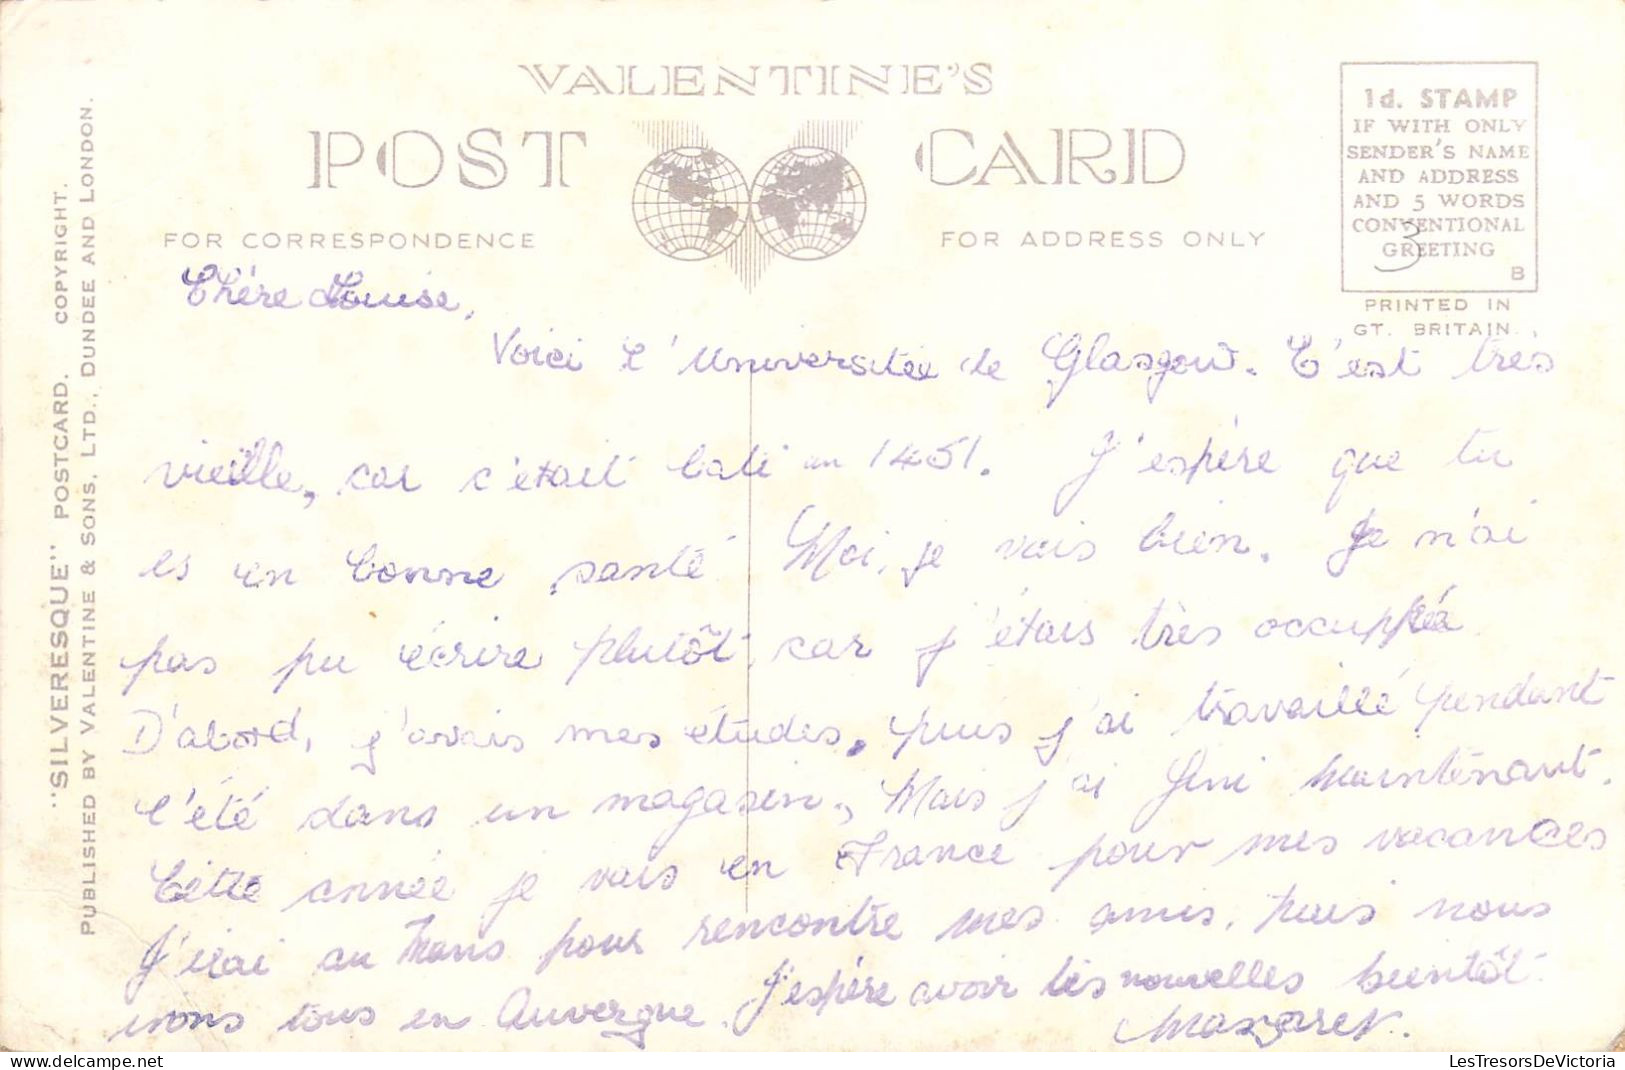 VALENTINE'S
POST CARD
FOR CORRESPONDENCE
FOR ADDRESS ONLY
1d. STAMP
IF WITH ONLY
SENDER'S NAME
AND ADDRESS
AND 5 WORDS
CONVENTIONAL
GREETING
B
3
PRINTED IN
GT. BRITAIN.
"SILVERESQUE" POSTCARD. COPYRIGHT.
PUBLISHED BY VALENTINE & SONS, LTD., DUNDEE AND LONDON.
Chère Louise,
Voici l'Université de Glasgow. C'est très
vieille, car c'était bati en 1451. J'espère que tu
es en bonne santé. Moi, je vais bien. Je n'ai
pas pu écrire plutôt, car j'étais très occupée
D'abord, j'avais mes études, puis j'ai travaillé pendant
l'été dans un magasin, Mais j'ai fini maintenant.
Cette année je vais en France pour mes vacances
J'irai au Mans pour rencontre mes amis, puis nous
irons tous en Auvergne. J'espère avoir tes nouvelles bientôt.
Margaret.
LesTresorsDeVictoria